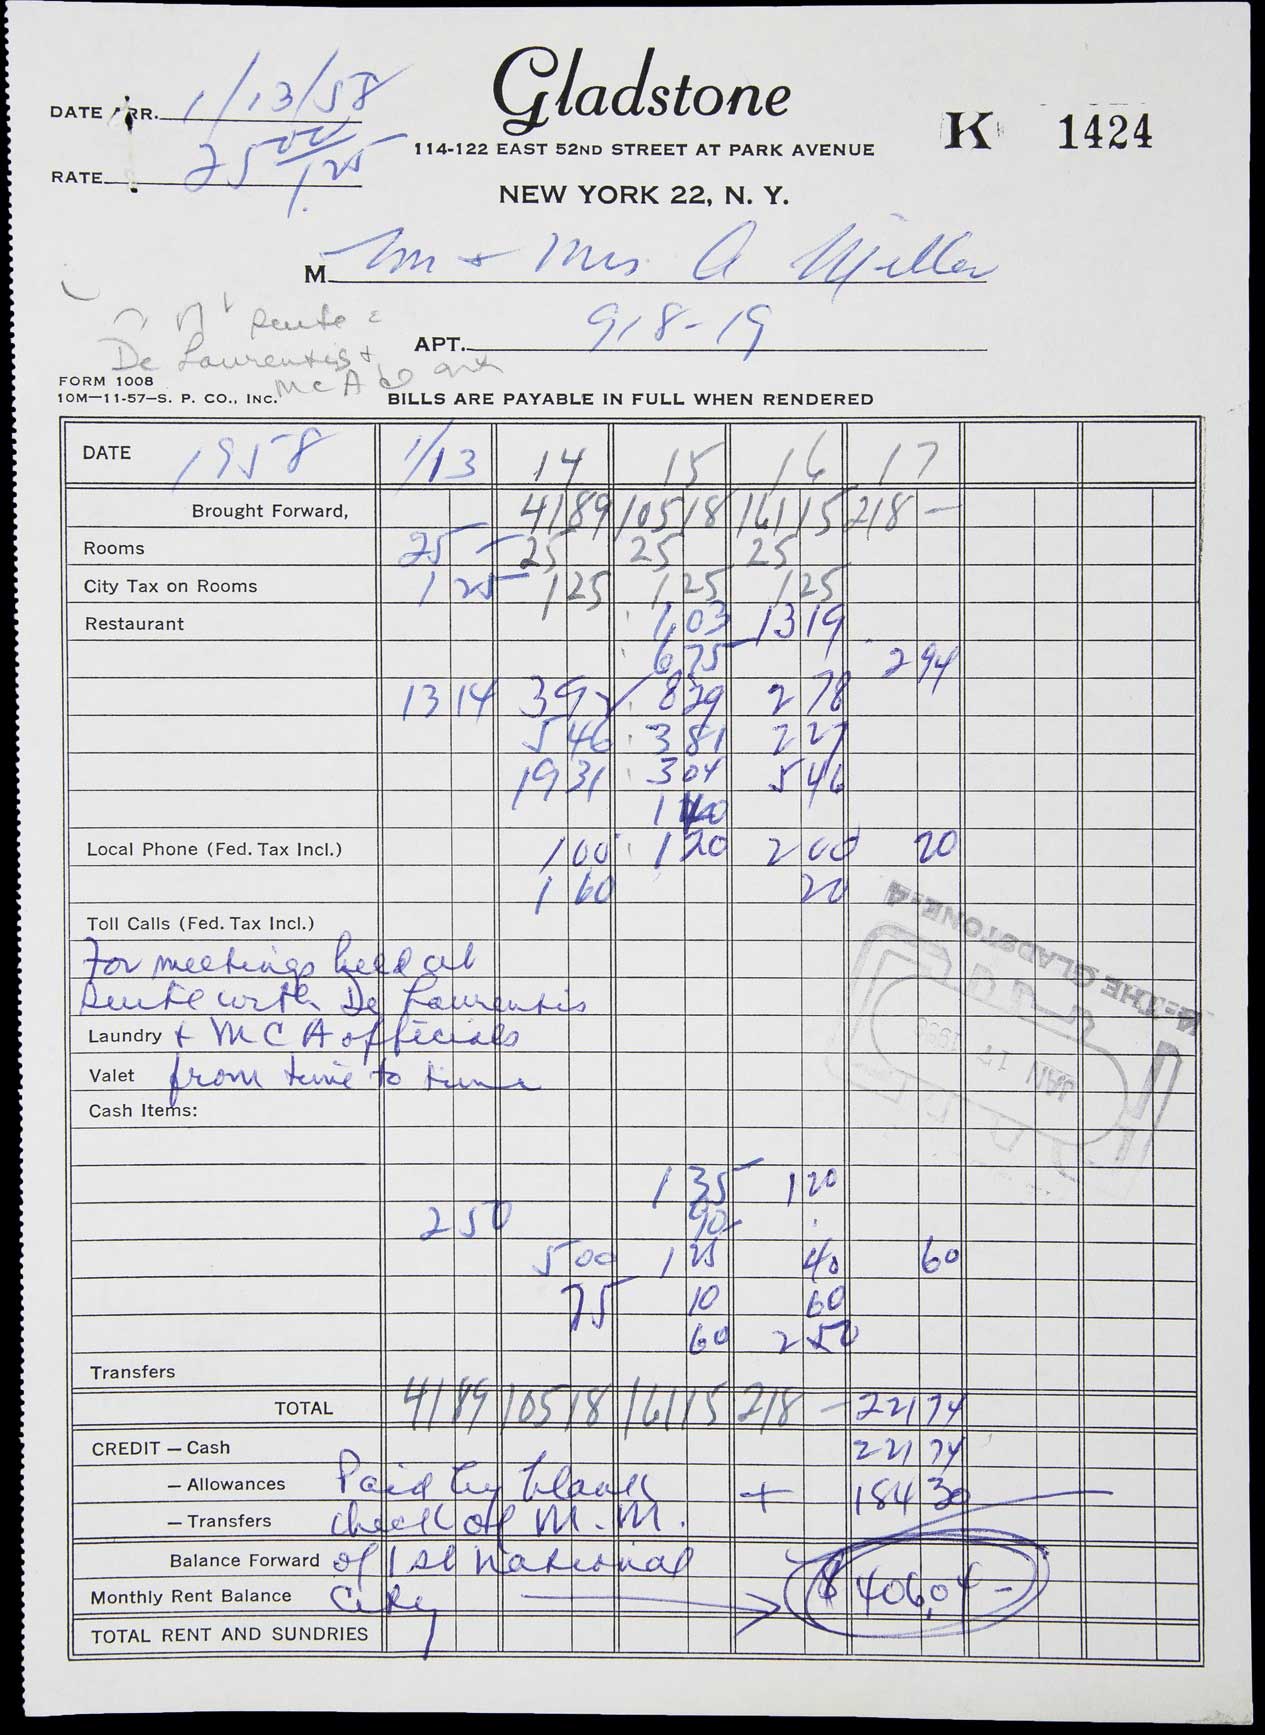 Gladstone
DATE ARR. 1/13/58
114-122 EAST 52ND STREET AT PARK AVENUE
K 1424
RATE 25 00 1.25
NEW YORK 22, N. Y.
M Mr + Mrs A Miller
suite
APT. 918-19
De Laurentis +
MCA
FORM 1008
10M—11-57—S. P. CO., INC.
BILLS ARE PAYABLE IN FULL WHEN RENDERED
DATE 1958 1/13 14 15 16 17
Brought Forward, 41 89 105 18 161 15 218 —
Rooms 25 — 25 25 25
City Tax on Rooms 1 25 1 25 1 25 1 25
Restaurant 1,03 13 19
6,75 2 94
13 14 39 8 29 2 78
5 46 3 81 2 27
19 31 3 04 5 46
1 40
Local Phone (Fed. Tax Incl.) 1 00 1 20 2 00 20
1 60 20
Toll Calls (Fed. Tax Incl.)
For meetings held at
suite with De Laurentis
Laundry + MCA officials
Valet from time to time
Cash Items:
1 35 1 20
2 50 90
5 00 1 25 40 60
75 10 60
60 2 50
Transfers
TOTAL 41 89 105 18 161 15 218 — 221 74
CREDIT — Cash 221 74
— Allowances Paid by blank + 184 30
— Transfers check of M. M.
Balance Forward of 1st National
Monthly Rent Balance City $406.04 —
TOTAL RENT AND SUNDRIES
K-THE GLADSTONE-4
JAN 17 1958